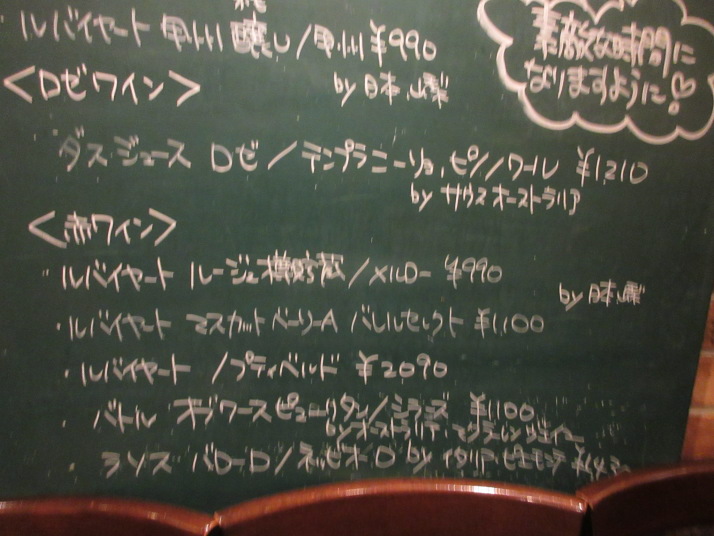 ルバイヤート 甲州 醸し/甲州 ¥990
by 日本 山梨
素敵な時間に
なりますように♡
<ロゼワイン>
ダス・ジュース ロゼ/テンプラニーリョ、ピノノワール ¥1210
by サウスオーストラリア
<赤ワイン>
・ルバイヤート ルージュ樽貯蔵/メルロー ¥990
by 日本 山梨
・ルバイヤート マスカットベーリーA バレルセレクト ¥1,100
・ルバイヤート /プティベルド ¥2090
・バトル オブ ワースピューリタン/シラーズ ¥1100
by オーストラリア
・ バローロ/ネッビオーロ by イタリア ピエモンテ